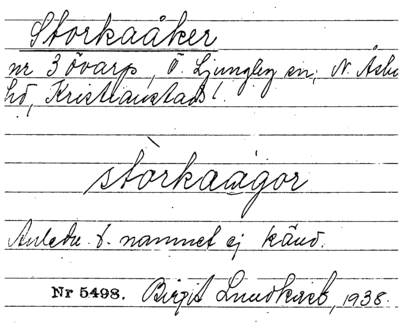 Storkaåker
nr 3 Övarp, Ö. Ljungby sn, N. Åsbo
hd, Kristianstads l.
stòrkaågor
Anledn. t. namnet ej känd.
Nr 5498. Birgit 1938.